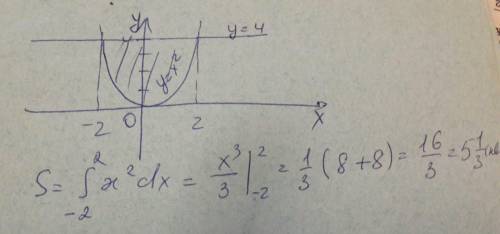 y
y=4
y=x²
-2 0 2 x
S = ∫₋₂² x²dx = x³/3 |₋₂² = 1/3 (8+8) = 16/3 = 5 1/3